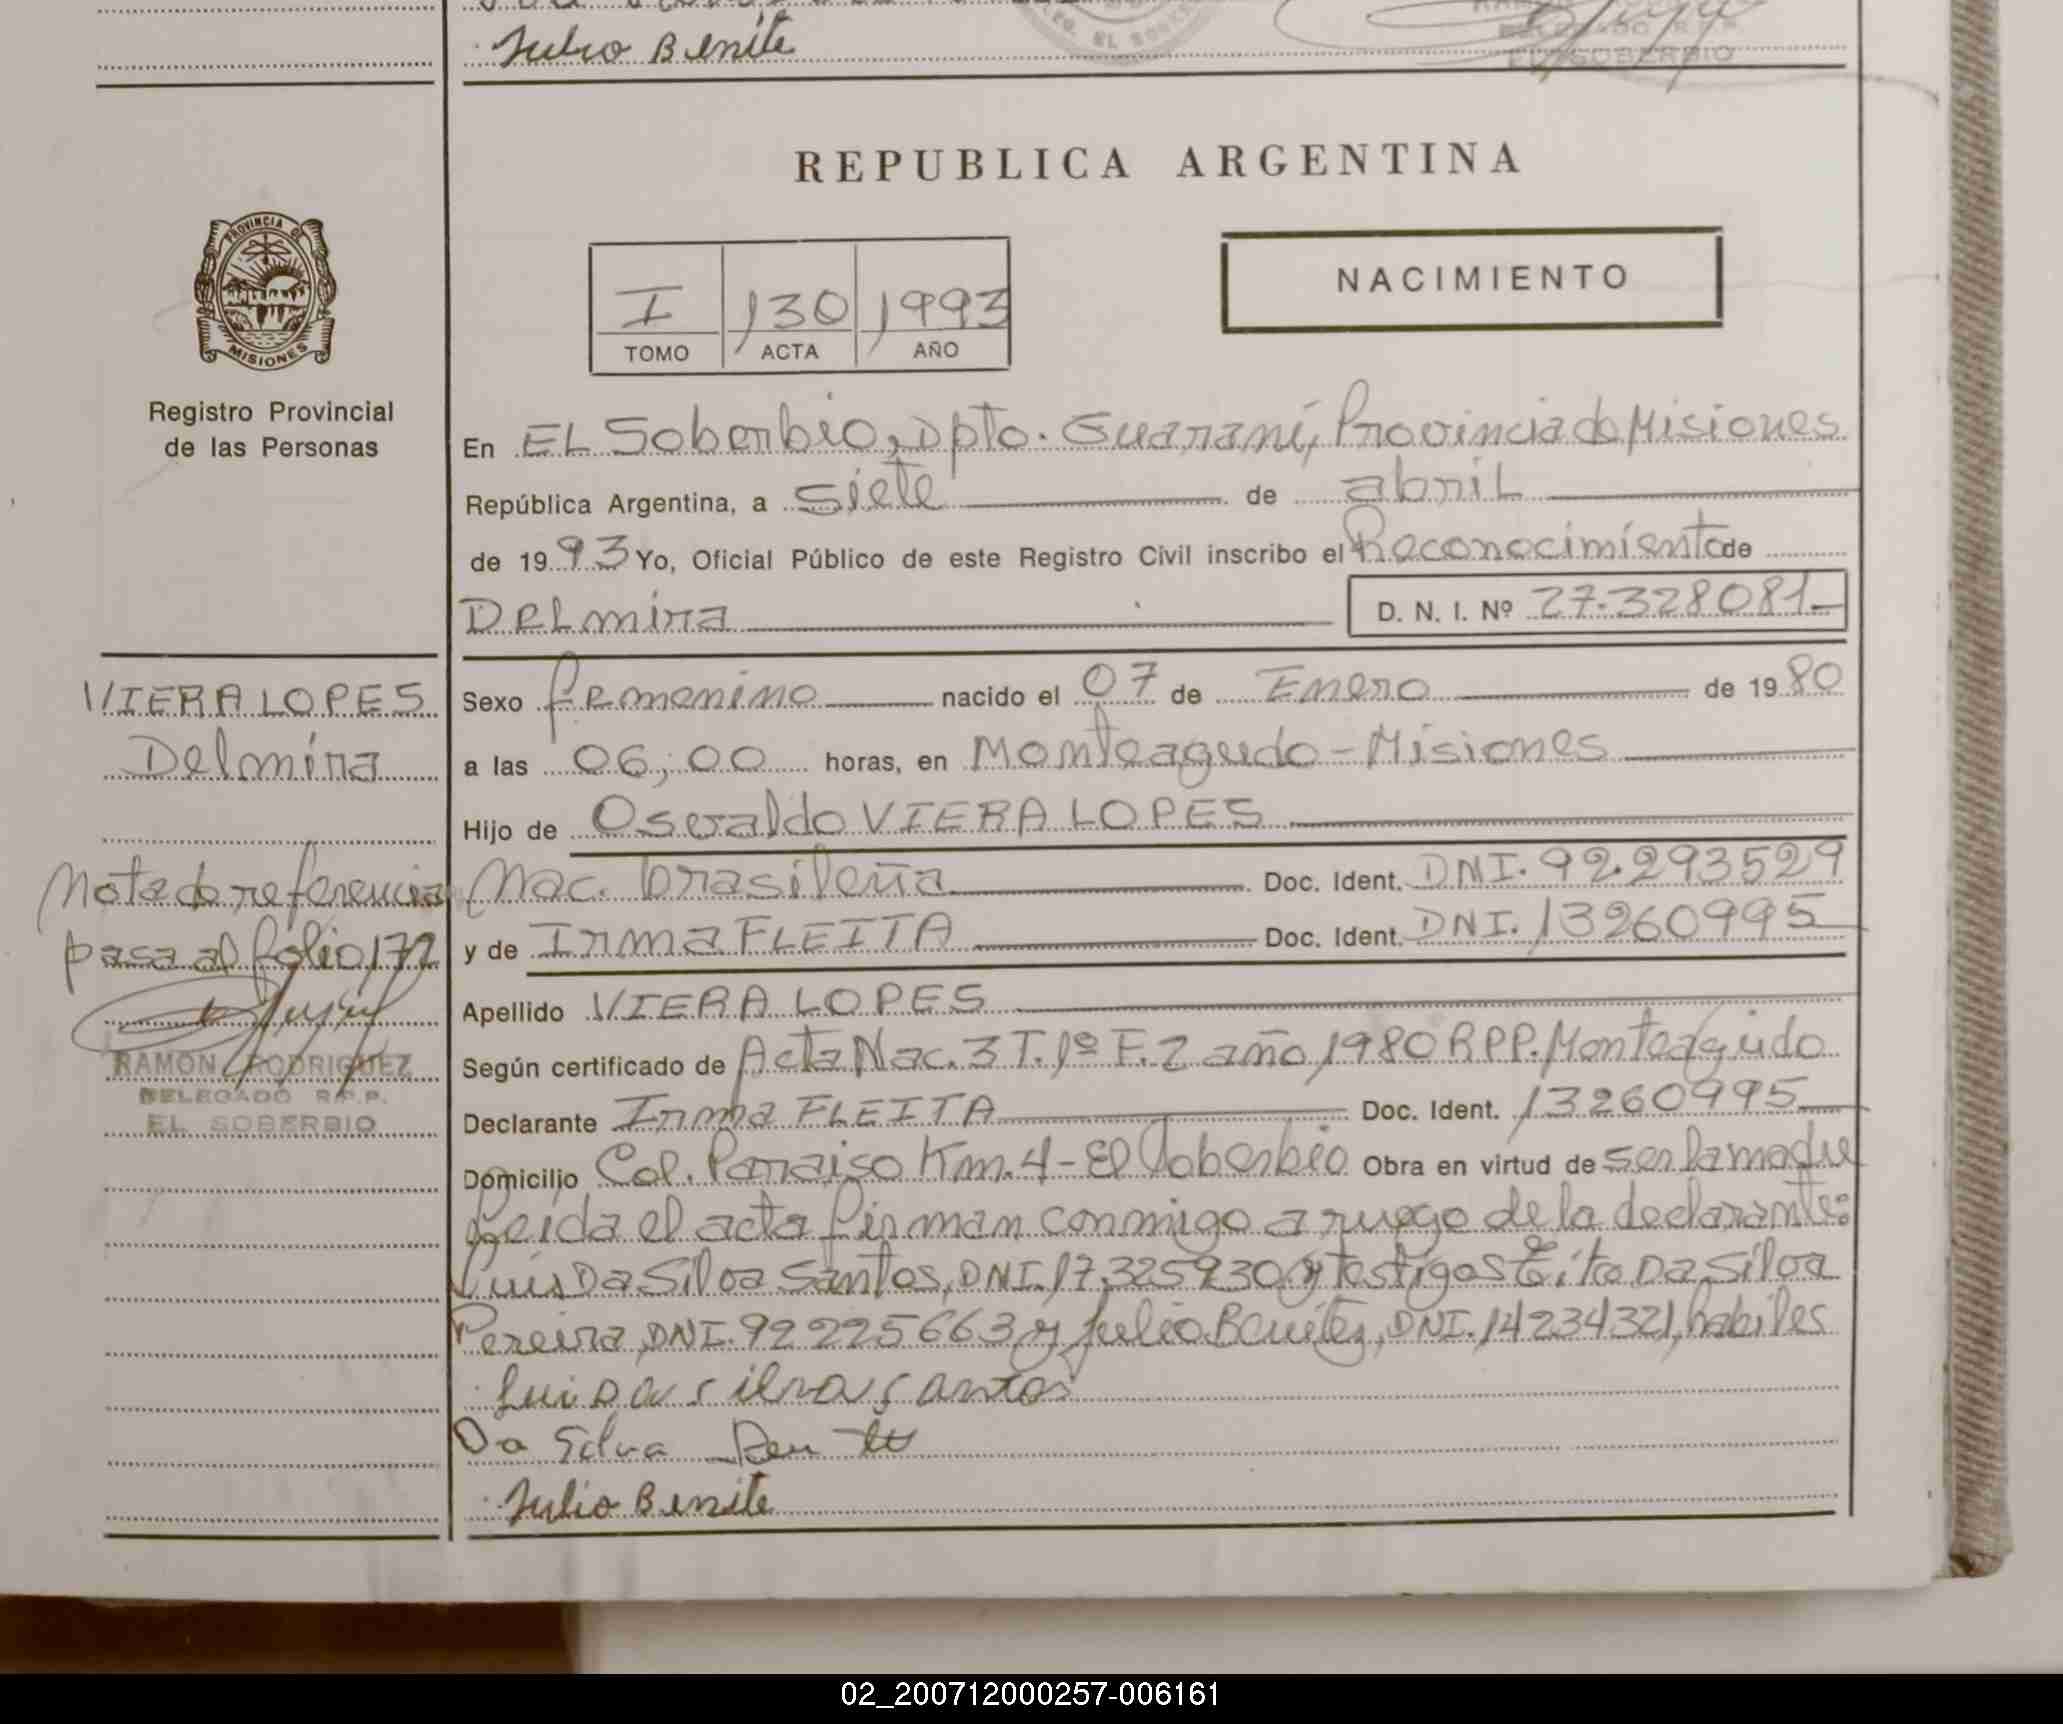 Julio Benite
EL SOBERBIO
REPUBLICA ARGENTINA
PROVINCIA DE
MISIONES
Registro Provincial
de las Personas
I 130 1993
TOMO ACTA AÑO
NACIMIENTO
En EL Soberbio, Dpto. Guaraní, Provincia de Misiones
República Argentina, a siete de abril
de 1993 Yo, Oficial Público de este Registro Civil inscribo el Reconocimiento de
Delmira D. N. I. Nº 27.328081
VIERA LOPES
Delmira
Nota de referencia
pasa al folio 172
RAMON RODRIGUEZ
DELEGADO R.P.P.
EL SOBERBIO
Sexo femenino nacido el 07 de Enero de 1980
a las 06,00 horas, en Monteagudo - Misiones
Hijo de Osvaldo VIERA LOPES
Nac. brasileña Doc. Ident. DNI. 92.293529
y de Irma FLEITA Doc. Ident. DNI. 13260995
Apellido VIERA LOPES
Según certificado de Acta Nac. 3 T. 1º F. 2 año 1980 R.P.P. Monteagudo
Declarante Irma FLEITA Doc. Ident. 13260995
Domicilio Col. Paraiso Km. 4 - El Soberbio Obra en virtud de ser la madre
Leída el acta firman conmigo a ruego de la declarante:
Luis Da Silva Santos, DNI. 17.325930 y testigos Da Silva
Pereira, DNI. 92225663 y Julio Benítez, DNI. 14234321, habiles
Luis Da Silva Santos
Da Silva
Julio Benite
02_200712000257-006161